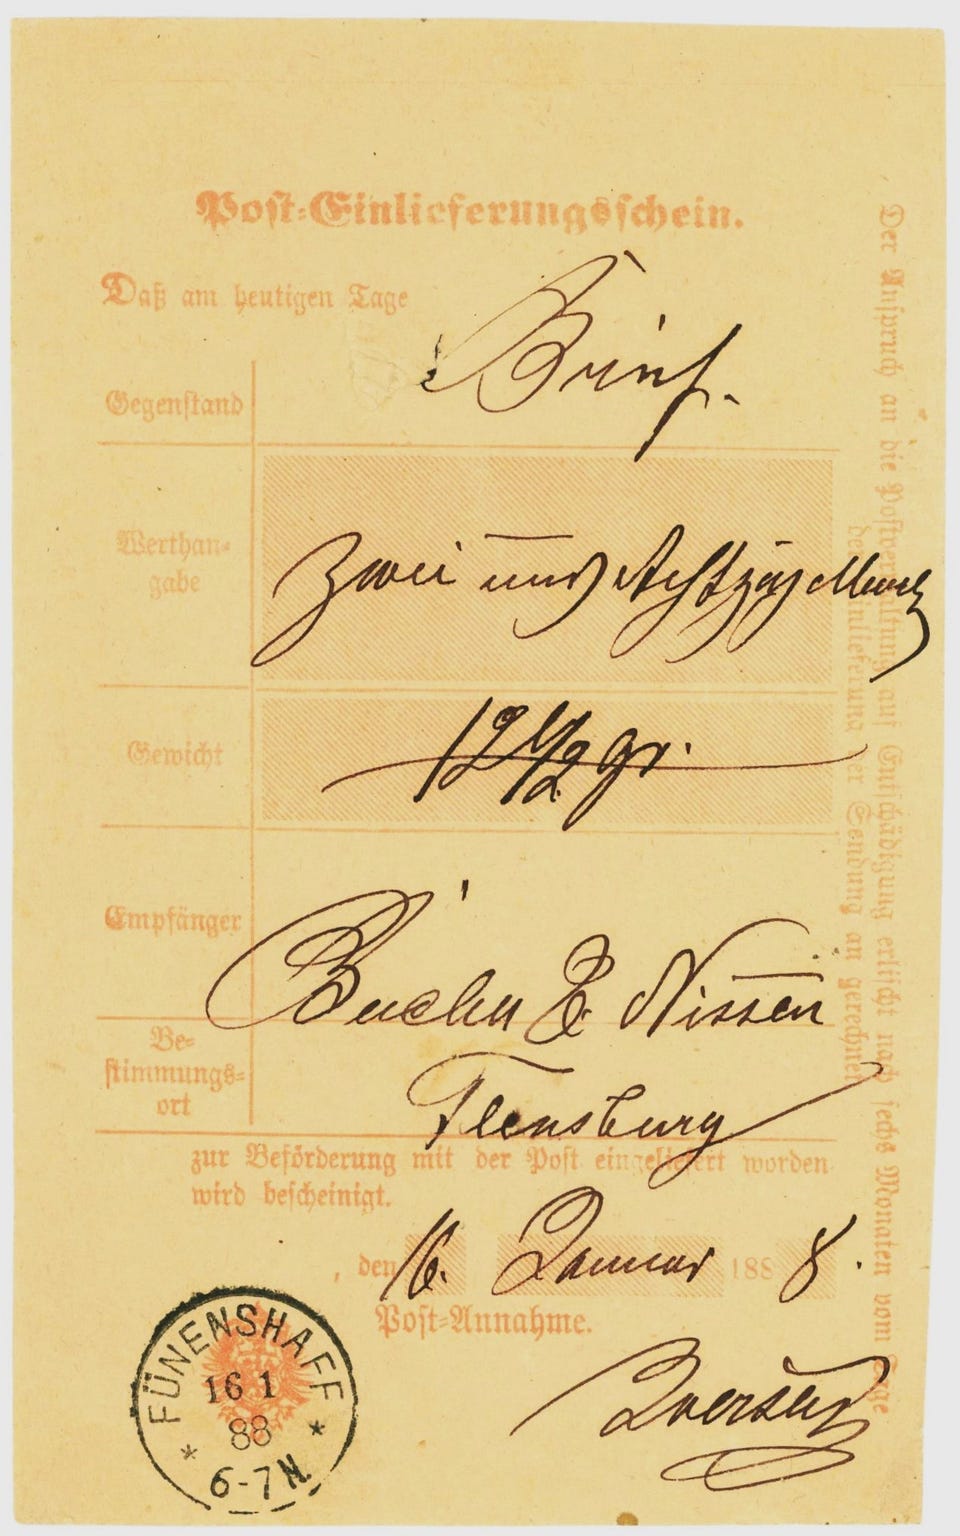 Post-Einlieferungsschein.
Daß am heutigen Tage
Gegenstand Brief.
Werthan-
gabe
Zwei und Achtzig Mark
Gewicht 12 1/2 gr.
Empfänger
& Nissen
Be-
stimmungs-
ort
Flensburg
zur Beförderung mit der Post eingeliefert worden
wird bescheinigt.
, den 16. Januar 188 8.
Post-Annahme.
FÜNENSHAFF
16 1
88
* *
6-7N.
Der Anspruch an die Postverwaltung auf Entschädigung erlischt nach sechs Monaten vom Tage
der Einlieferung der Sendung an gerechnet